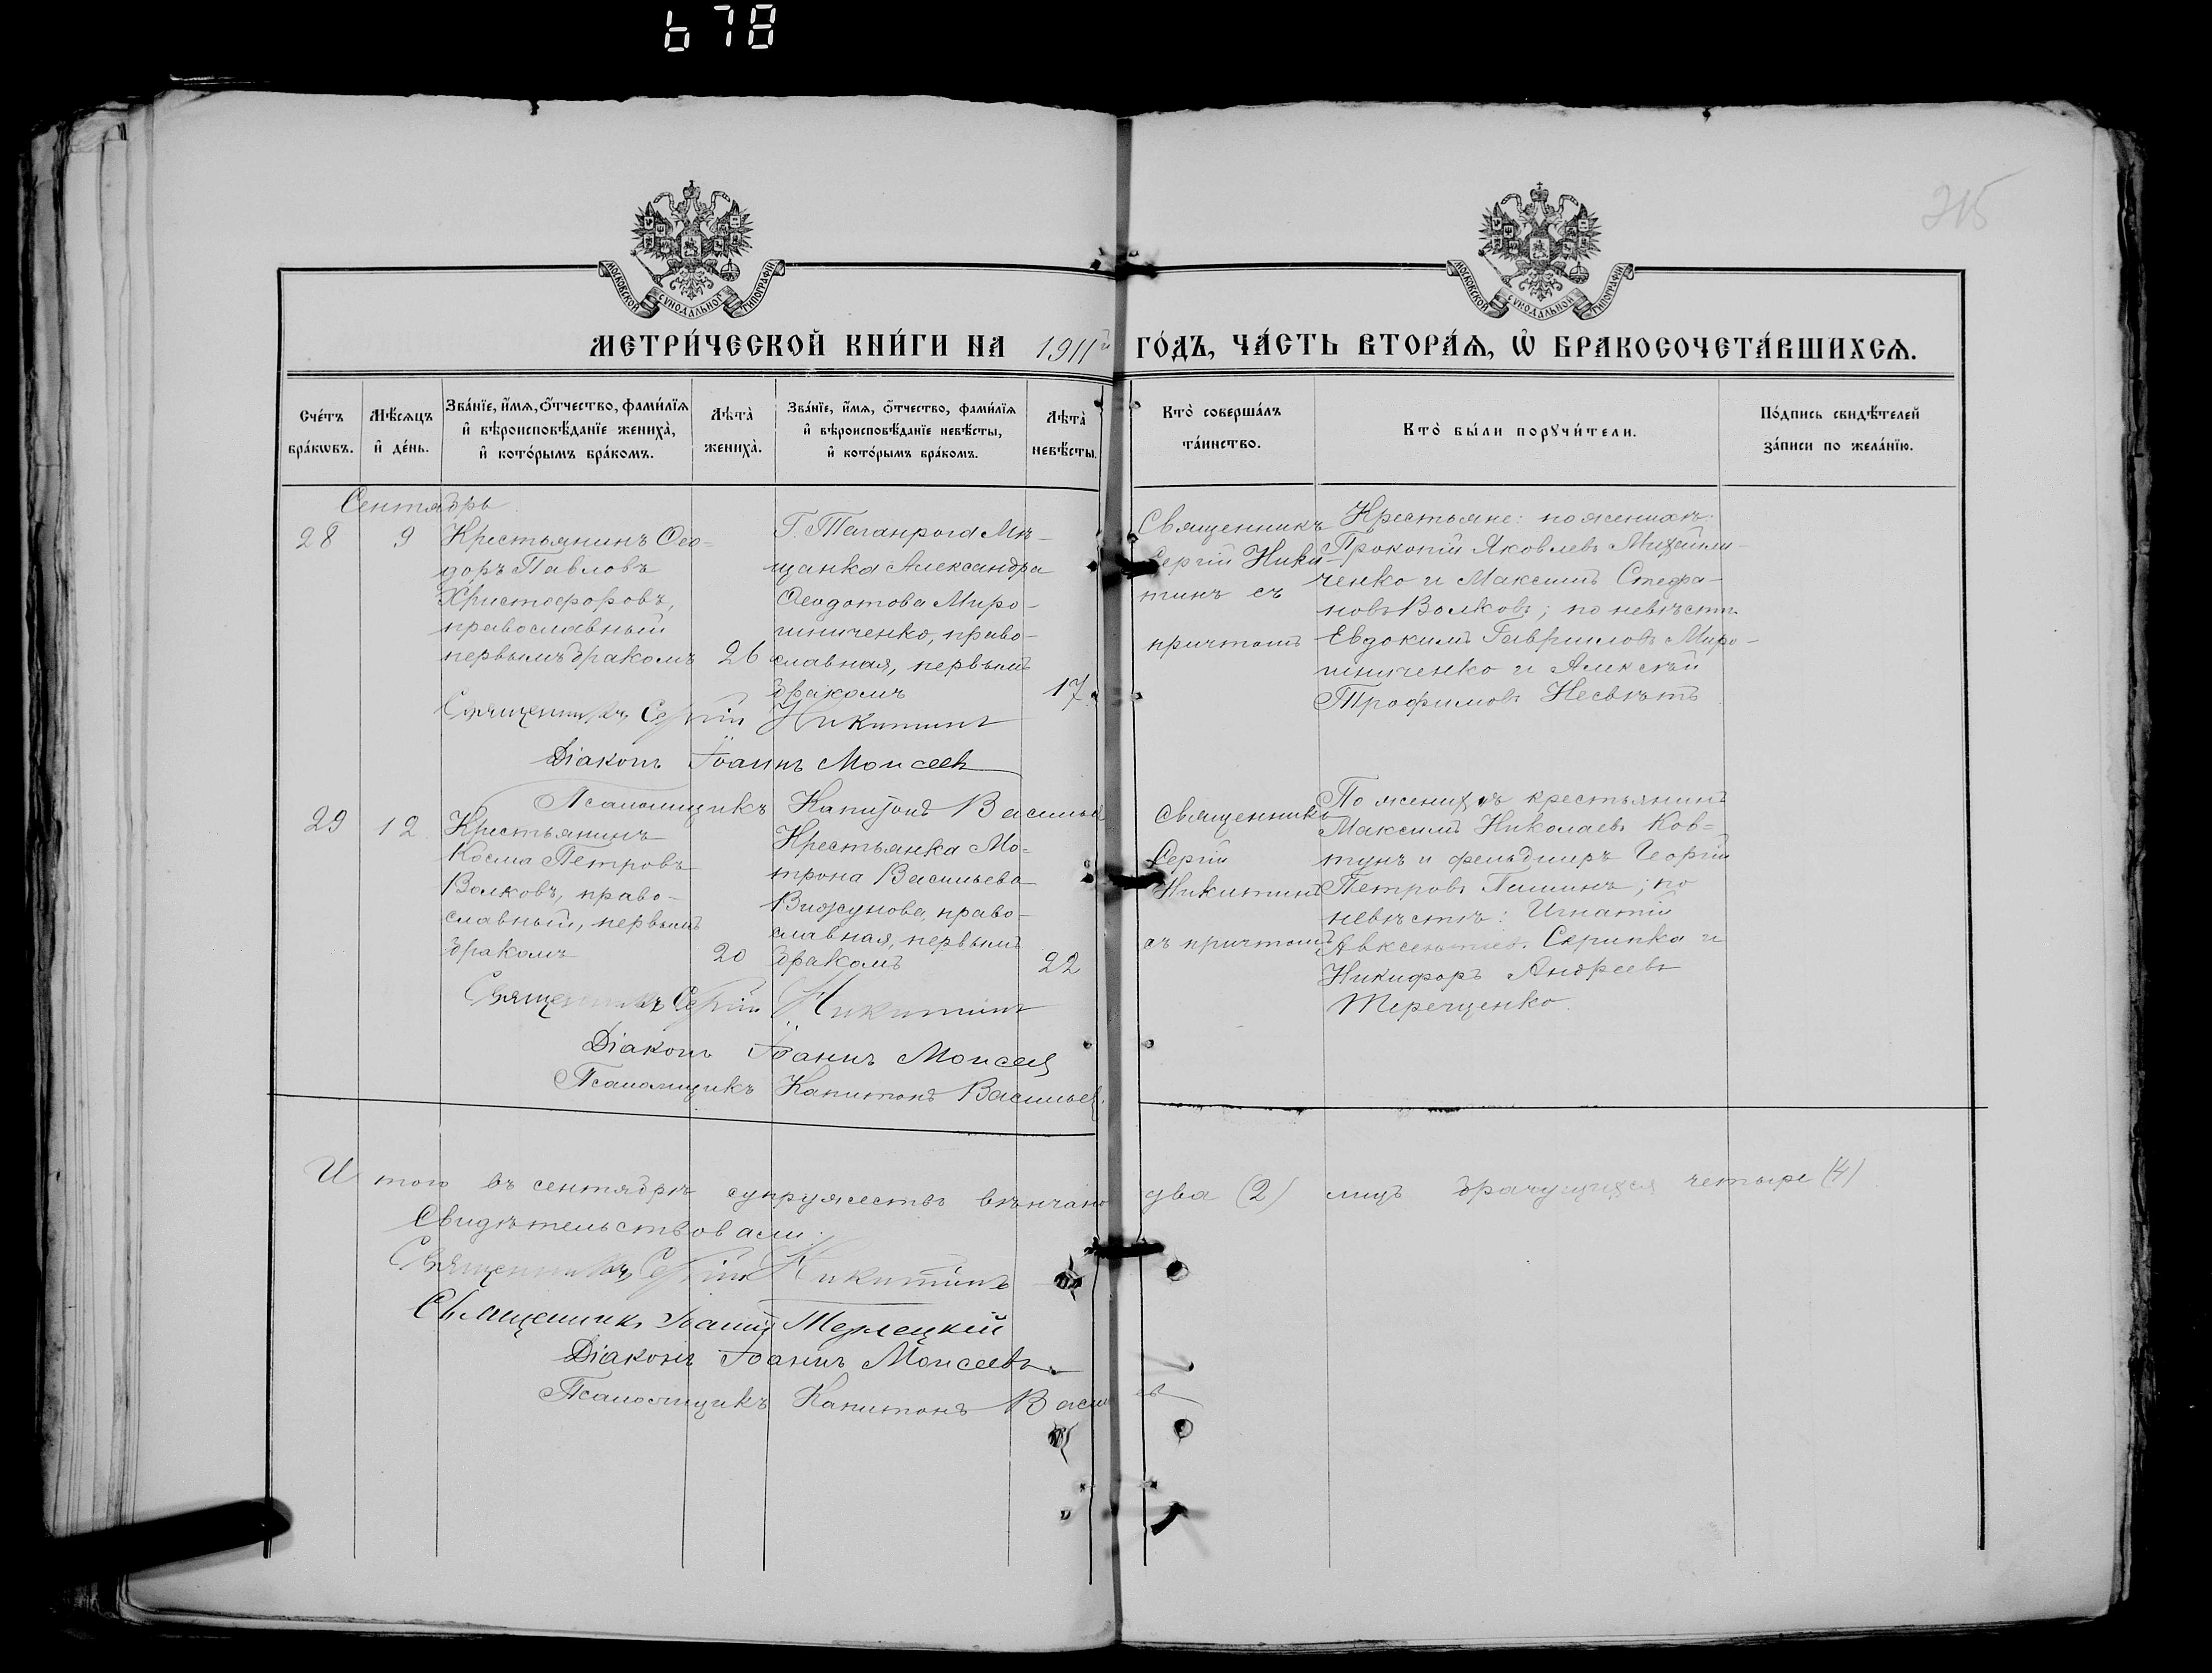 678
315
МОСКОВСКОЙ СѴНОДАЛЬНОЙ ТИПОГРАФІИ
МОСКОВСКОЙ СѴНОДАЛЬНОЙ ТИПОГРАФІИ
МЕТРИ́ЧЕСКОЙ КНИ́ГИ НА 1911й ГО́ДЪ, ЧА́СТЬ ВТОРА́Ѧ, Ѡ҆ БРАКОСОЧЕТА́ВШИХСѦ.
Сче́тъ
бра́кѡвъ.
Мѣ́сяцъ
и҆ де́нь.
Зва́нїе, и҆́мѧ, ѻ҆́тчество, фами́лїѧ
и҆ вѣроисповѣ́данїе жениха̀,
и҆ кото́рымъ бра́комъ.
Лѣта̀
жениха̀.
Зва́нїе, и҆́мѧ, ѻ҆́тчество, фами́лїѧ
и҆ вѣроисповѣ́данїе невѣ́сты,
и҆ кото́рымъ бра́комъ.
Лѣта̀
невѣ́сты.
Кто̀ соверша́лъ
та́инство.
Кто̀ бы́ли порꙋчи́тели.
По́дпись свидѣ́телей
за́писи по жела́нїю.
Сентябрь
28
9
Крестьянинъ Ѳео=
доръ Павловъ
Христофоровъ,
православный
первымъ бракомъ
26
Г. Таганрога Мѣ-
щанка Александра
Ѳеодотова Миро-
шниченко, право-
славная, первымъ
бракомъ
17.
Священникъ
Сергій Ники-
тинъ съ
причтомъ
Крестьяне: по женихѣ
Прокопій Яковлевъ Михайли-
ченко и Максимъ Стефа-
новъ Волковъ; по невѣстѣ
Евдокимъ Гавриловъ Миро-
шниченко и Алексѣй
Трофимовъ Несвѣтъ
Священникъ Сергій Никитинъ
Діаконъ Іоаннъ Моисеевъ
Псаломщикъ Капитонъ Васильев
29
12.
Крестьянинъ
Косма Петровъ
Волковъ, право-
славный, первымъ
бракомъ
20
Крестьянка Мо=
трона Васильева
Вижунова, право-
славная, первымъ
бракомъ
22
Священникъ
Сергій
Никитинъ
съ причтомъ
По женихѣ крестьянинъ
Максимъ Николаевъ Ков=
тунъ и фельдшеръ Георгій
Петровъ Пишинъ; по
невѣстѣ: Игнатій
Авксентіев. Скрипка и
Никифоръ Андреевъ
Терещенко.
Священникъ Сергій Никитинъ
Діаконъ Іоаннъ Моисеев
Псаломщикъ Капитонъ Васильев.
Итого въ сентябрѣ супружествъ вѣнчано два (2) лицъ брачущихся четыре (4)
Свидѣтельствовали:
Священникъ Сергій Никитинъ
Священникъ Іоаннъ
Діаконъ Іоаннъ Моисеевъ.
Псаломщикъ Капитонъ Васильев